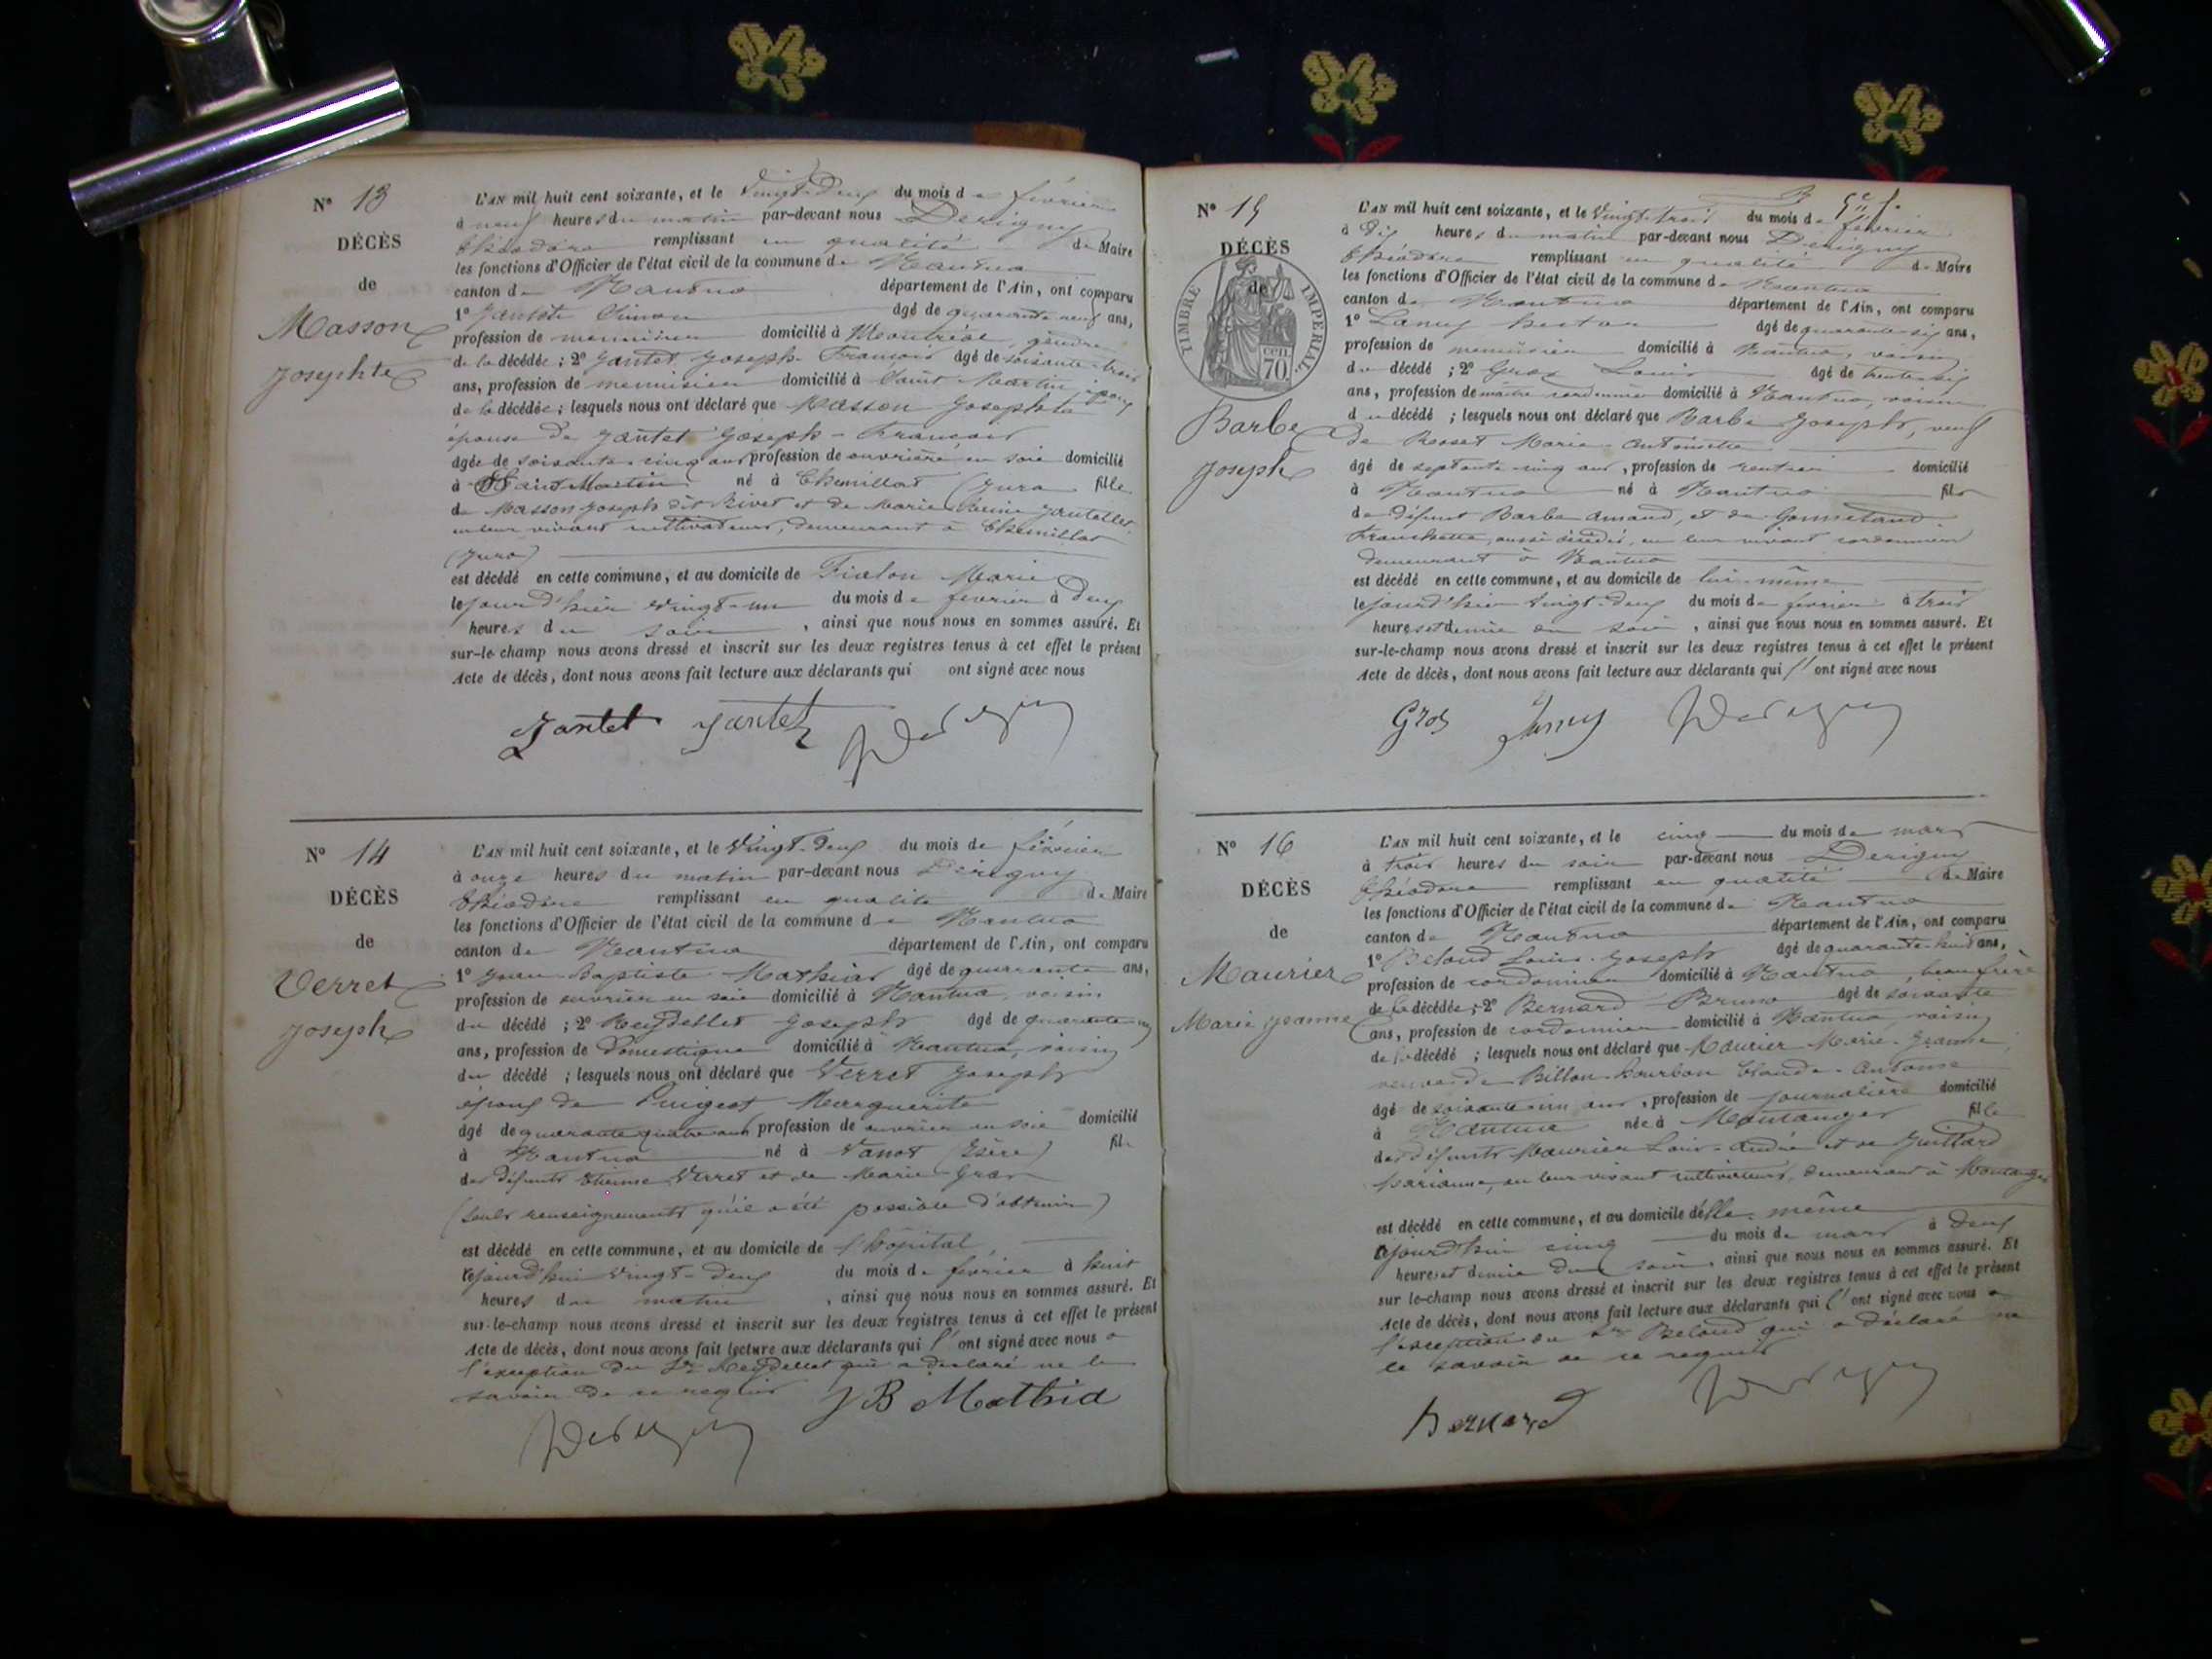 Nº 13
DÉCÈS
de
Masson
Josephte
L'AN mil huit cent soixante, et le Vingt-Deux du mois de février
à neuf heures du matin par-devant nous Derigny
Théodore remplissant en qualité de Maire
les fonctions d'Officier de l'état civil de la commune de Nantua
canton de Nantua département de l'Ain, ont comparu
1º Jantet Simon âgé de quarante neuf ans,
profession de menuisier domicilié à Montréal, gendre
de la décédée ; 2º Jantet Joseph-François âgé de soixante-trois
ans, profession de menuisier domicilié à Saint-Martin, époux
de la décédée ; lesquels nous ont déclaré que Masson Josephte
épouse de Jantet Joseph-François
âgée de soixante-cinq ans profession de ouvrière en soie domicilié
à Saint Martin né à Chemillat (Jura fille
de Masson Joseph dit Rivet et de Marie Reine Jantellet
en leur vivant cultivateurs, demeurant à Chemillat
(Jura)
est décédé en cette commune, et au domicile de Fialon Marie
le jourd'hier vingt-un du mois de février à deux
heures du soir, ainsi que nous nous en sommes assuré. Et
sur-le-champ nous avons dressé et inscrit sur les deux registres tenus à cet effet le présent
Acte de décès, dont nous avons fait lecture aux déclarants qui ont signé avec nous
Jantet Jantet Derigny
Nº 14
DÉCÈS
de
Verret
Joseph
L'AN mil huit cent soixante, et le Vingt-Deux du mois de février
à onze heures du matin par-devant nous Derigny
Théodore remplissant en qualité de Maire
les fonctions d'Officier de l'état civil de la commune de Nantua
canton de Nantua département de l'Ain, ont comparu
1º Jean-Baptiste Mathias âgé de quarante ans,
profession de ouvrier en soie domicilié à Nantua, voisin
du décédé ; 2º Reydellet Joseph âgé de quarante
ans, profession de domestique domicilié à Nantua, voisin
du décédé ; lesquels nous ont déclaré que Verret Joseph
époux de Puigeot Marguerite
âgé de quarante quatre ans profession de ouvrier en soie domicilié
à Nantua né à Vanot (Isère) fils
des défunts Etienne Verret et de Marie Gras
(seuls renseignements qu'il a été possible d'obtenir)
est décédé en cette commune, et au domicile de l'hôpital
le jourd'hui vingt-deux du mois de février à huit
heures du matin, ainsi que nous nous en sommes assuré. Et
sur-le-champ nous avons dressé et inscrit sur les deux registres tenus à cet effet le présent
Acte de décès, dont nous avons fait lecture aux déclarants qui l'ont signé avec nous à
l'exception du Sr Reydellet qui a déclaré ne le
savoir de ce requis
JB Mathia
Derigny
Nº 15
DÉCÈS
de
TIMBRE IMPERIAL.
CENT. 70.
Barbe
Joseph
L'AN mil huit cent soixante, et le Vingt-trois du mois de février
à dix heures du matin par-devant nous Derigny
Théodore remplissant en qualité de Maire
les fonctions d'Officier de l'état civil de la commune de Nantua
canton de Nantua département de l'Ain, ont comparu
1º Lançy âgé de quarante-six ans,
profession de menuisier domicilié à Nantua, voisin
du décédé ; 2º Gros Louis âgé de trente-six
ans, profession de maître cordonnier domicilié à Nantua, voisin
du décédé ; lesquels nous ont déclaré que Barbe Joseph, veuf
de Rosset Marie Antoinette
âgé de septante-cinq ans, profession de rentier domicilié
à Nantua né à Nantua fils
de défunt Barbe Amand, et de
Franchette, aussi décédée, en leur vivant cordonniers
demeurant à Nantua
est décédé en cette commune, et au domicile de lui-même
le jourd'hier vingt-deux du mois de février à trois
heures et demie du soir, ainsi que nous nous en sommes assuré. Et
sur-le-champ nous avons dressé et inscrit sur les deux registres tenus à cet effet le présent
Acte de décès, dont nous avons fait lecture aux déclarants qui l'ont signé avec nous
Gros Derigny
Nº 16
DÉCÈS
de
Maurier
Marie Jeanne
L'AN mil huit cent soixante, et le cinq du mois de mars
à trois heures du soir par-devant nous Derigny
Théodore remplissant en qualité de Maire
les fonctions d'Officier de l'état civil de la commune de Nantua
canton de Nantua département de l'Ain, ont comparu
1º Beloud Louis-Joseph âgé de quarante-huit ans,
profession de cordonnier domicilié à Nantua, beau frère
de la décédée ; 2º Bernard Bruno âgé de soixante
ans, profession de cordonnier domicilié à Nantua, voisin
de la décédé ; lesquels nous ont déclaré que Maurier Marie-Jeanne,
veuve de Billon-Bourbon Claude-Antoine
âgé de soixante-un ans, profession de journalière domicilié
à Nantua née à Montanges fille
des défunts Maurier Louis-André et de Juillard
Marianne, en leur vivant cultivateurs, demeurant à Montanges
est décédé en cette commune, et au domicile d'elle-même
le jourd'hui cinq du mois de mars à deux
heures et demie du soir, ainsi que nous nous en sommes assuré. Et
sur le-champ nous avons dressé et inscrit sur les deux registres tenus à cet effet le présent
Acte de décès, dont nous avons fait lecture aux déclarants qui l'ont signé avec nous à
l'exception du Sr Beloud qui a déclaré ne
le savoir de ce requis
Bernard Derigny